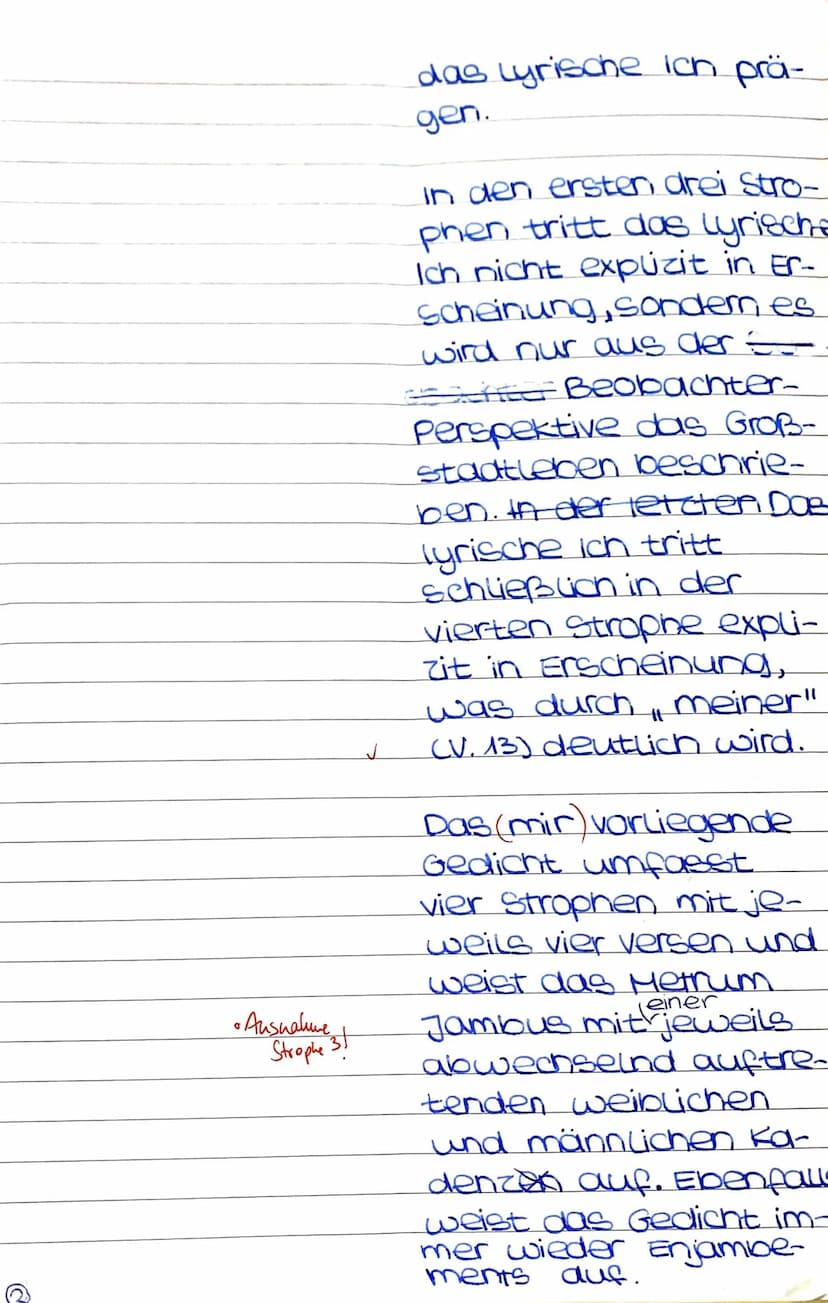 das lyrische ich prä-
gen.
In den ersten drei Stro-
phen tritt das lyrische
Ich nicht explizit in Er-
scheinung, sondern es
wird nur aus der
Beobachter-
Perspektive das Groß-
stadtleben beschrie-
ben. In der letzten Das
lyrische ich tritt
schließlich in der
vierten Strophe expli-
zit in Erscheinung,
was durch „meiner"
✓ (V. 13) deutlich wird.
Das (mir) vorliegende
Gedicht umfasst
vier Strophen mit je-
weils vier versen und
weist das Metrum
einer
Jambus mit jeweils
• Ausnahme
Strophe 3!
abwechselnd auftre-
tenden weiblichen
und männlichen Ka-
denzen auf. Ebenfalls
weist das Gedicht im-
mer wieder Enjambe-
ments auf.
2